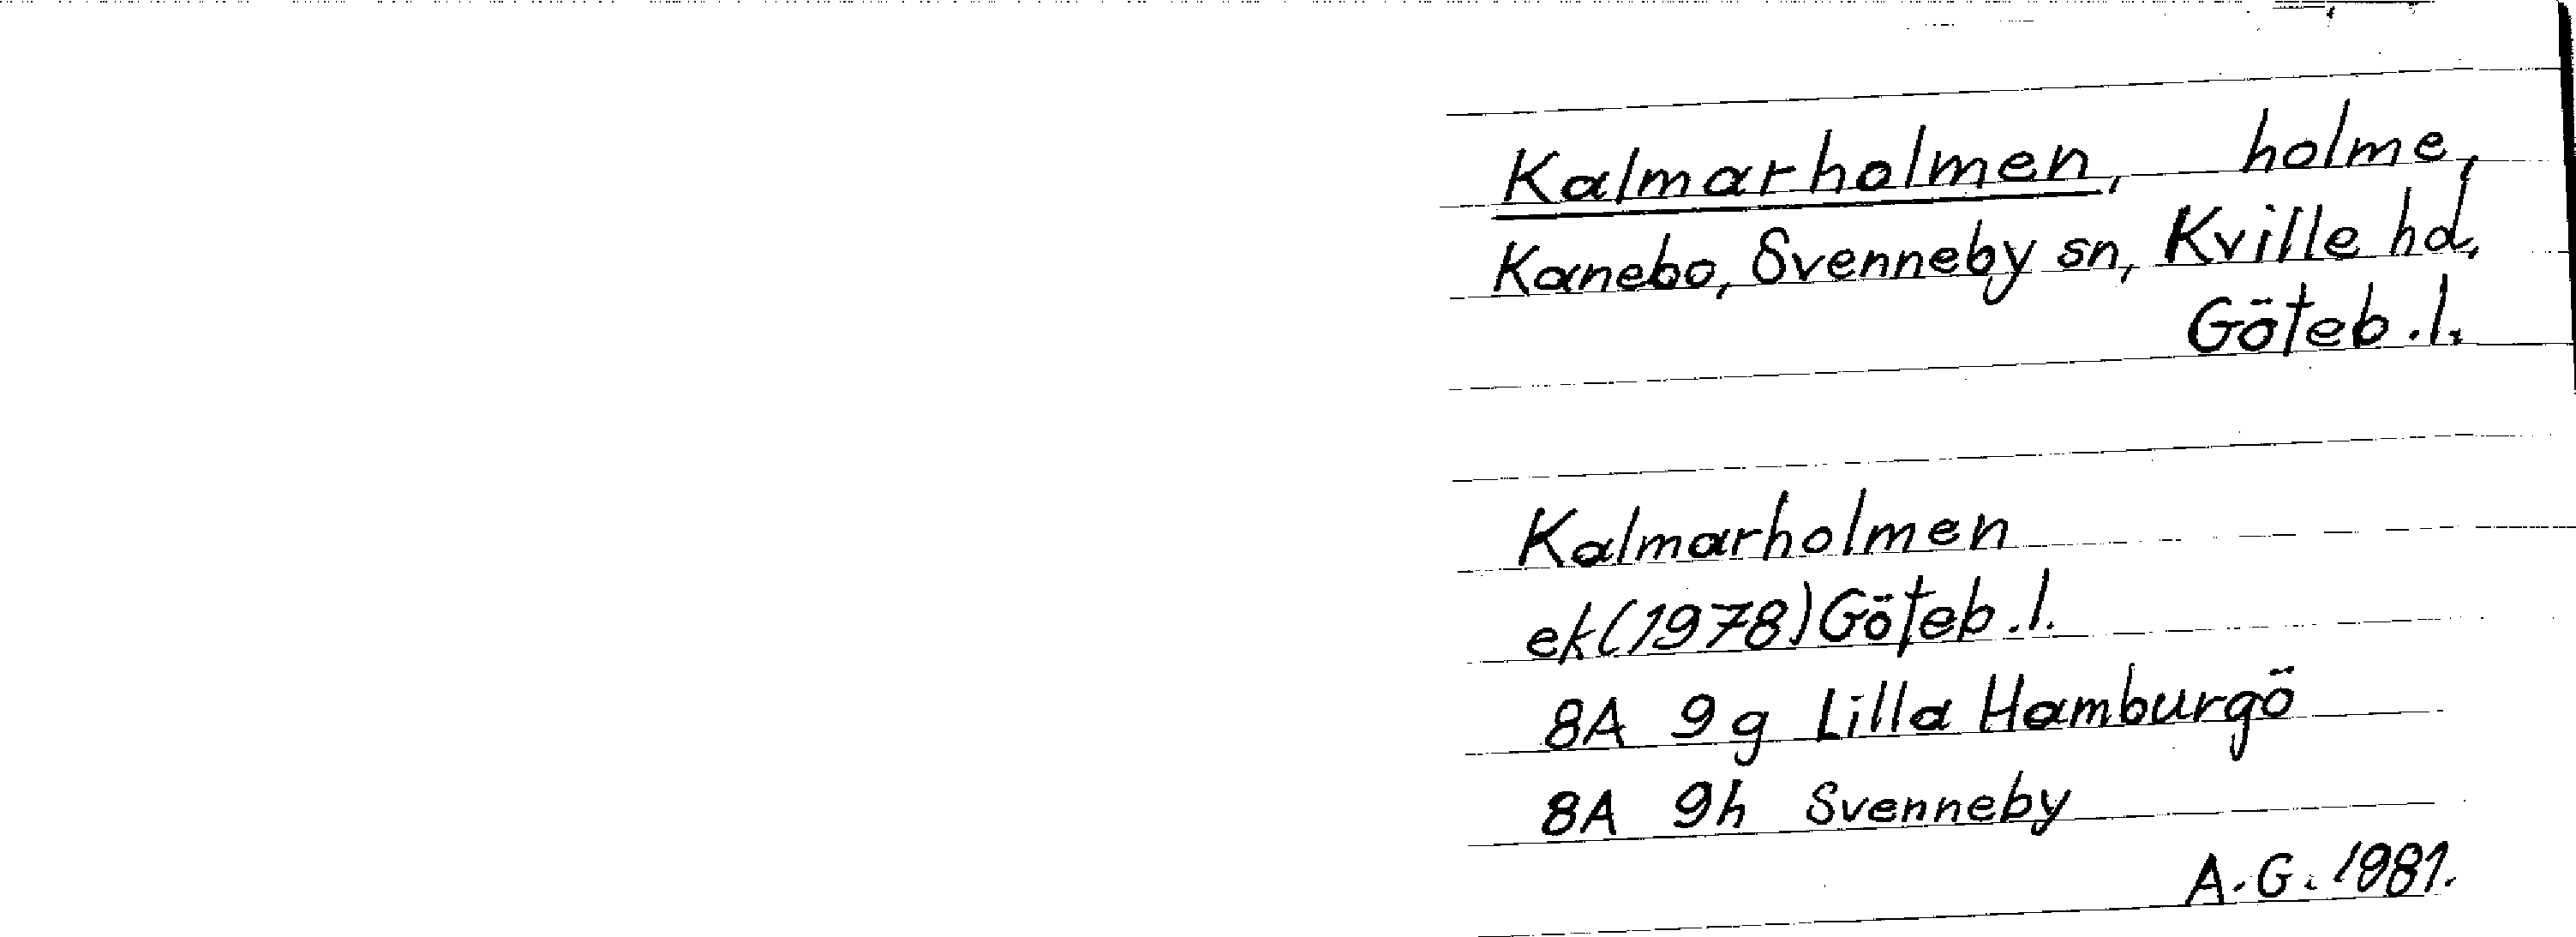 Kalmarholmen, holme,
Kanebo, Svenneby sn, Kville hd,
Göteb.l.
Kalmarholmen
ek(1978)Göteb.l.
8A 9g Lilla Hamburgö
8A 9h Svenneby
A.G. 1981.